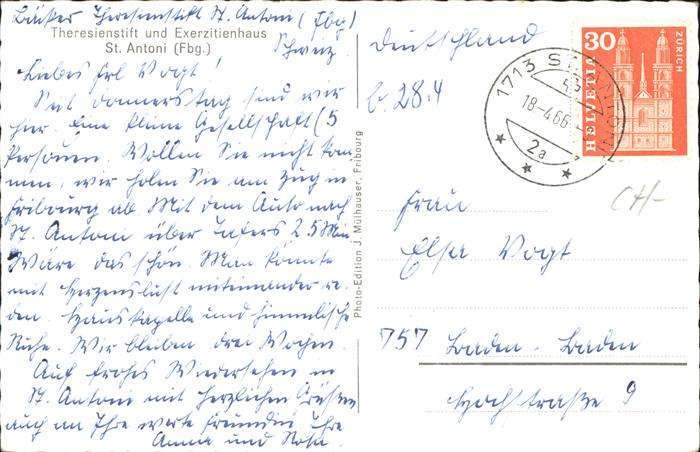 Bäuker Theresienstift St. Antoni (Fbg)
Theresienstift und Exerzitienhaus
St. Antoni (Fbg.)
Schweiz.
Liebes Frl Vogt!
Seit donnerstag sind wir
hier. Eine kleine Gesellschaft (5
Personen. Wollen Sie nicht kom
men, wir holen Sie am Zug in
Fribourg ab Mit dem Auto nach
St. Antoni über Tafers 25 Min
Wäre das schön Man könnte
mit Herzenslust miteinander re-
den. Hauskapelle und himmlische
Ruhe. Wir bleiben drei Wochen.
Auf frohes Wiedersehen in
St. Antoni mit herzlichen Grüßen
auch an Ihre werte Freundin Ihre
Anna und Rosa.
Photo-Edition J. Mülhauser, Fribourg
Deutschland
b. 28.4
1713 ST. ANTONI
18-4.66
2a
30
HELVETIA
ZÜRICH
CH-
Frau
Elsa Vogt
757 Baden-Baden
Hochstraße 9